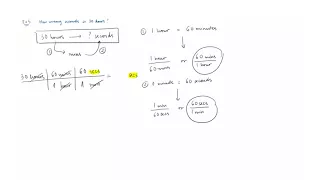 How many seconds in 50 hours?
50 hours → ? seconds
① mins ②
50 hours | 60 mins | 60 secs = secs
1 hour | 1 min
① 1 hour = 60 minutes
1 hour or 60 mins
60 mins 1 hour
② 1 minute = 60 seconds
1 min or 60 secs
60 secs 1 min